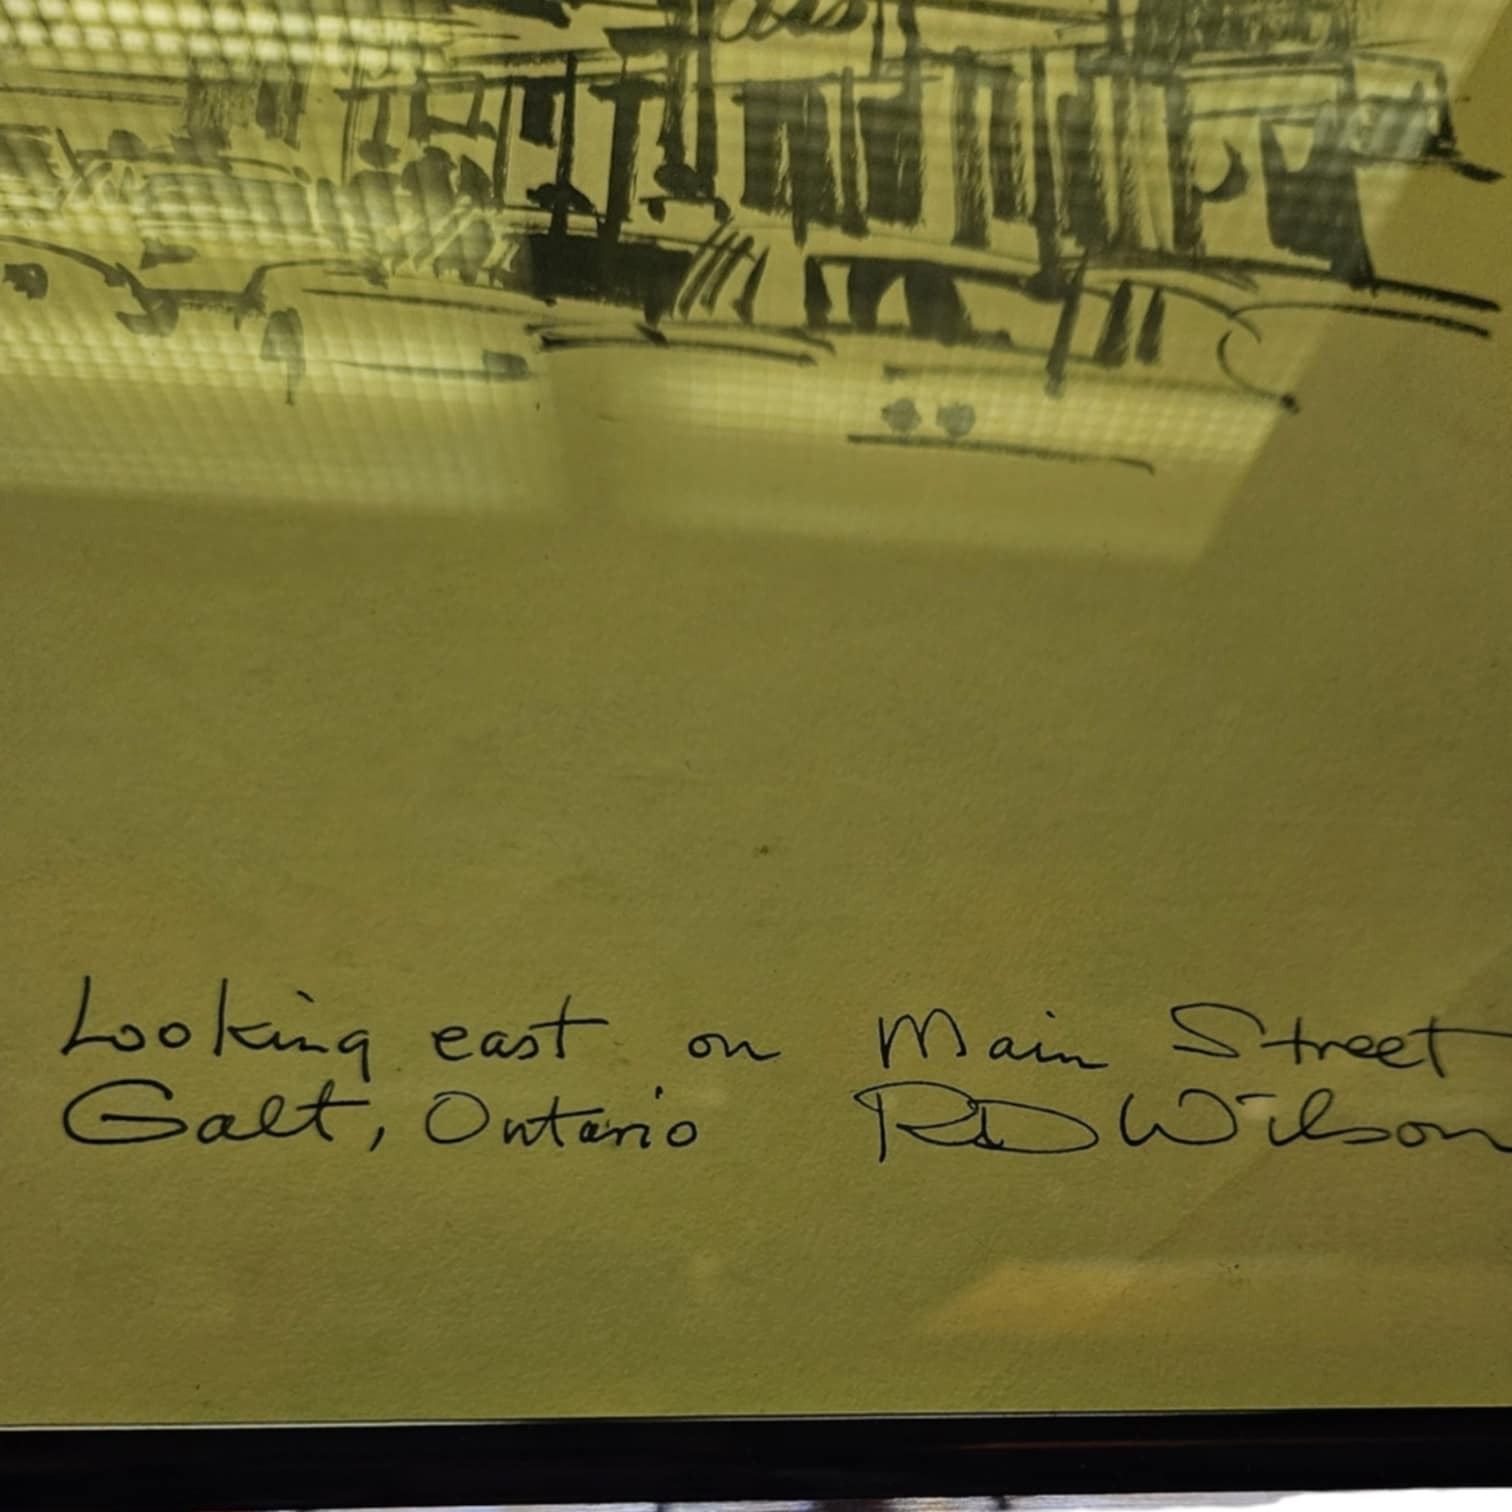 Looking east on Main Street
Galt, Ontario RD Wilson